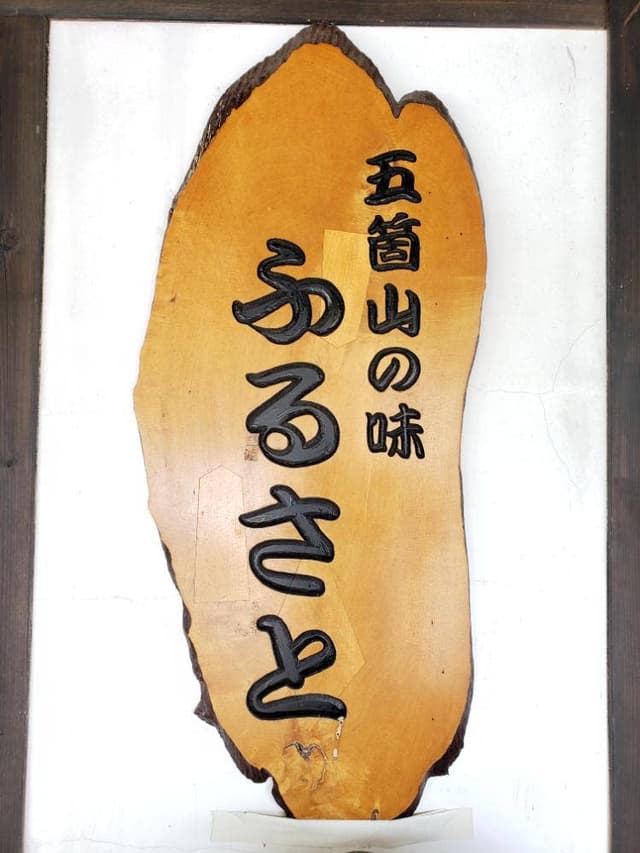 五箇山の味
ふるさと